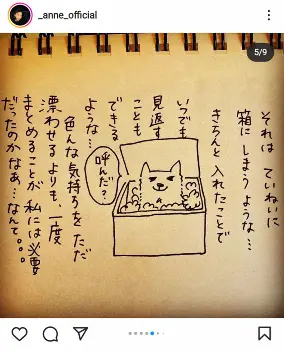 _anne_official
5/9
それは ていねいに
箱に しまうような…
きちんと 入れたことで
いつでも
見返す
ことも
できる
ような…
呼んだ?
色んな気持ちを ただ
漂わせるよりも、一度
まとめることが 私には必要
だったのかなぁ…なんて。。。